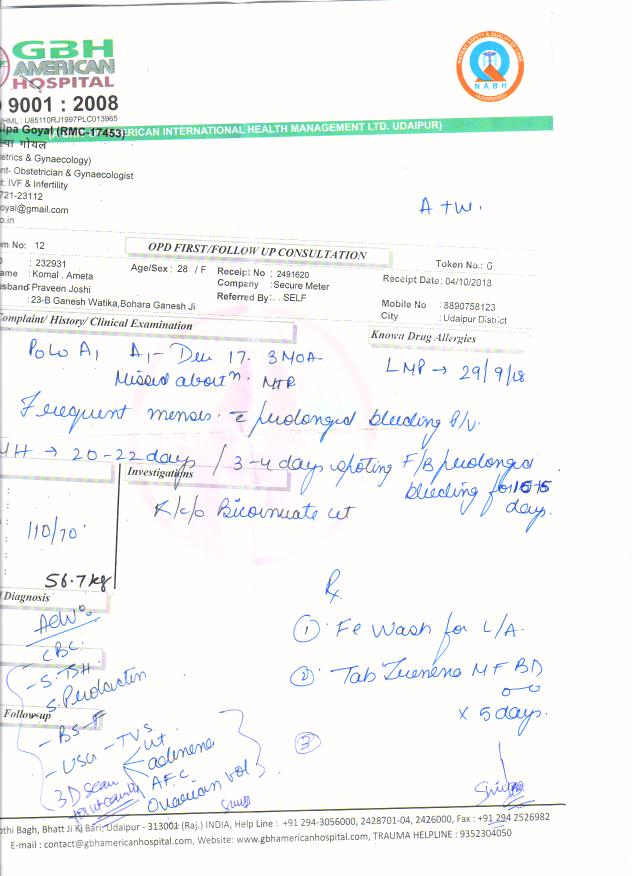 GBH
AMERICAN
HOSPITAL
9001 : 2008
HML : U85110RJ1997PLC013965
PATIENT SAFETY & QUALITY OF CARE
NABH
AMERICAN INTERNATIONAL HEALTH MANAGEMENT LTD. UDAIPUR)
ilpa Goyal (RMC-17453)
ल्पा गोयल
etrics & Gynaecology)
nt- Obstetrician & Gynaecologist
t: IVF & Infertility
721-23112
oyal@gmail.com
o.in
om No: 12
OPD FIRST/FOLLOW UP CONSULTATION
Token No.: G
: 232931
Age/Sex : 28 / F
Receipt No : 2491620
Receipt Date: 04/10/2018
ame : Komal . Ameta
Company : Secure Meter
usband Praveen Joshi
Referred By: . SELF
Mobile No : 8890758123
: 23-B Ganesh Watika,Bohara Ganesh Ji
City : Udaipur District
Complaint/ History/ Clinical Examination
Known Drug Allergies
P0L0A1 A1 - Dec 17. 3MOA-
LMP → 29/9/18
Missed abortn. MTP
Frequent menses. c prolonged bleeding P/V.
MH → 20-22 days / 3-4 days spotting F/B prolonged
bleeding for 15
days.
Investigations
K/c/o Bicornuate ut
110/70
56.7kg
Diagnosis
Rx
Adv
CBC
- S. TSH
S. Prolactin
Follow-up
- BS-F
- USG - TVS
ut
adnexa
AFC
Ovarian vol
3D scan
① Fe Wash for L/A.
② Tab MF BD
x 5 days.
③
othi Bagh, Bhatt Ji Ki Bari, Udaipur - 313001 (Raj.) INDIA, Help Line : +91 294-3056000, 2428701-04, 2426000, Fax : +91 294 2526982
E-mail : contact@gbhamericanhospital.com, Website: www.gbhamericanhospital.com, TRAUMA HELPLINE : 9352304050